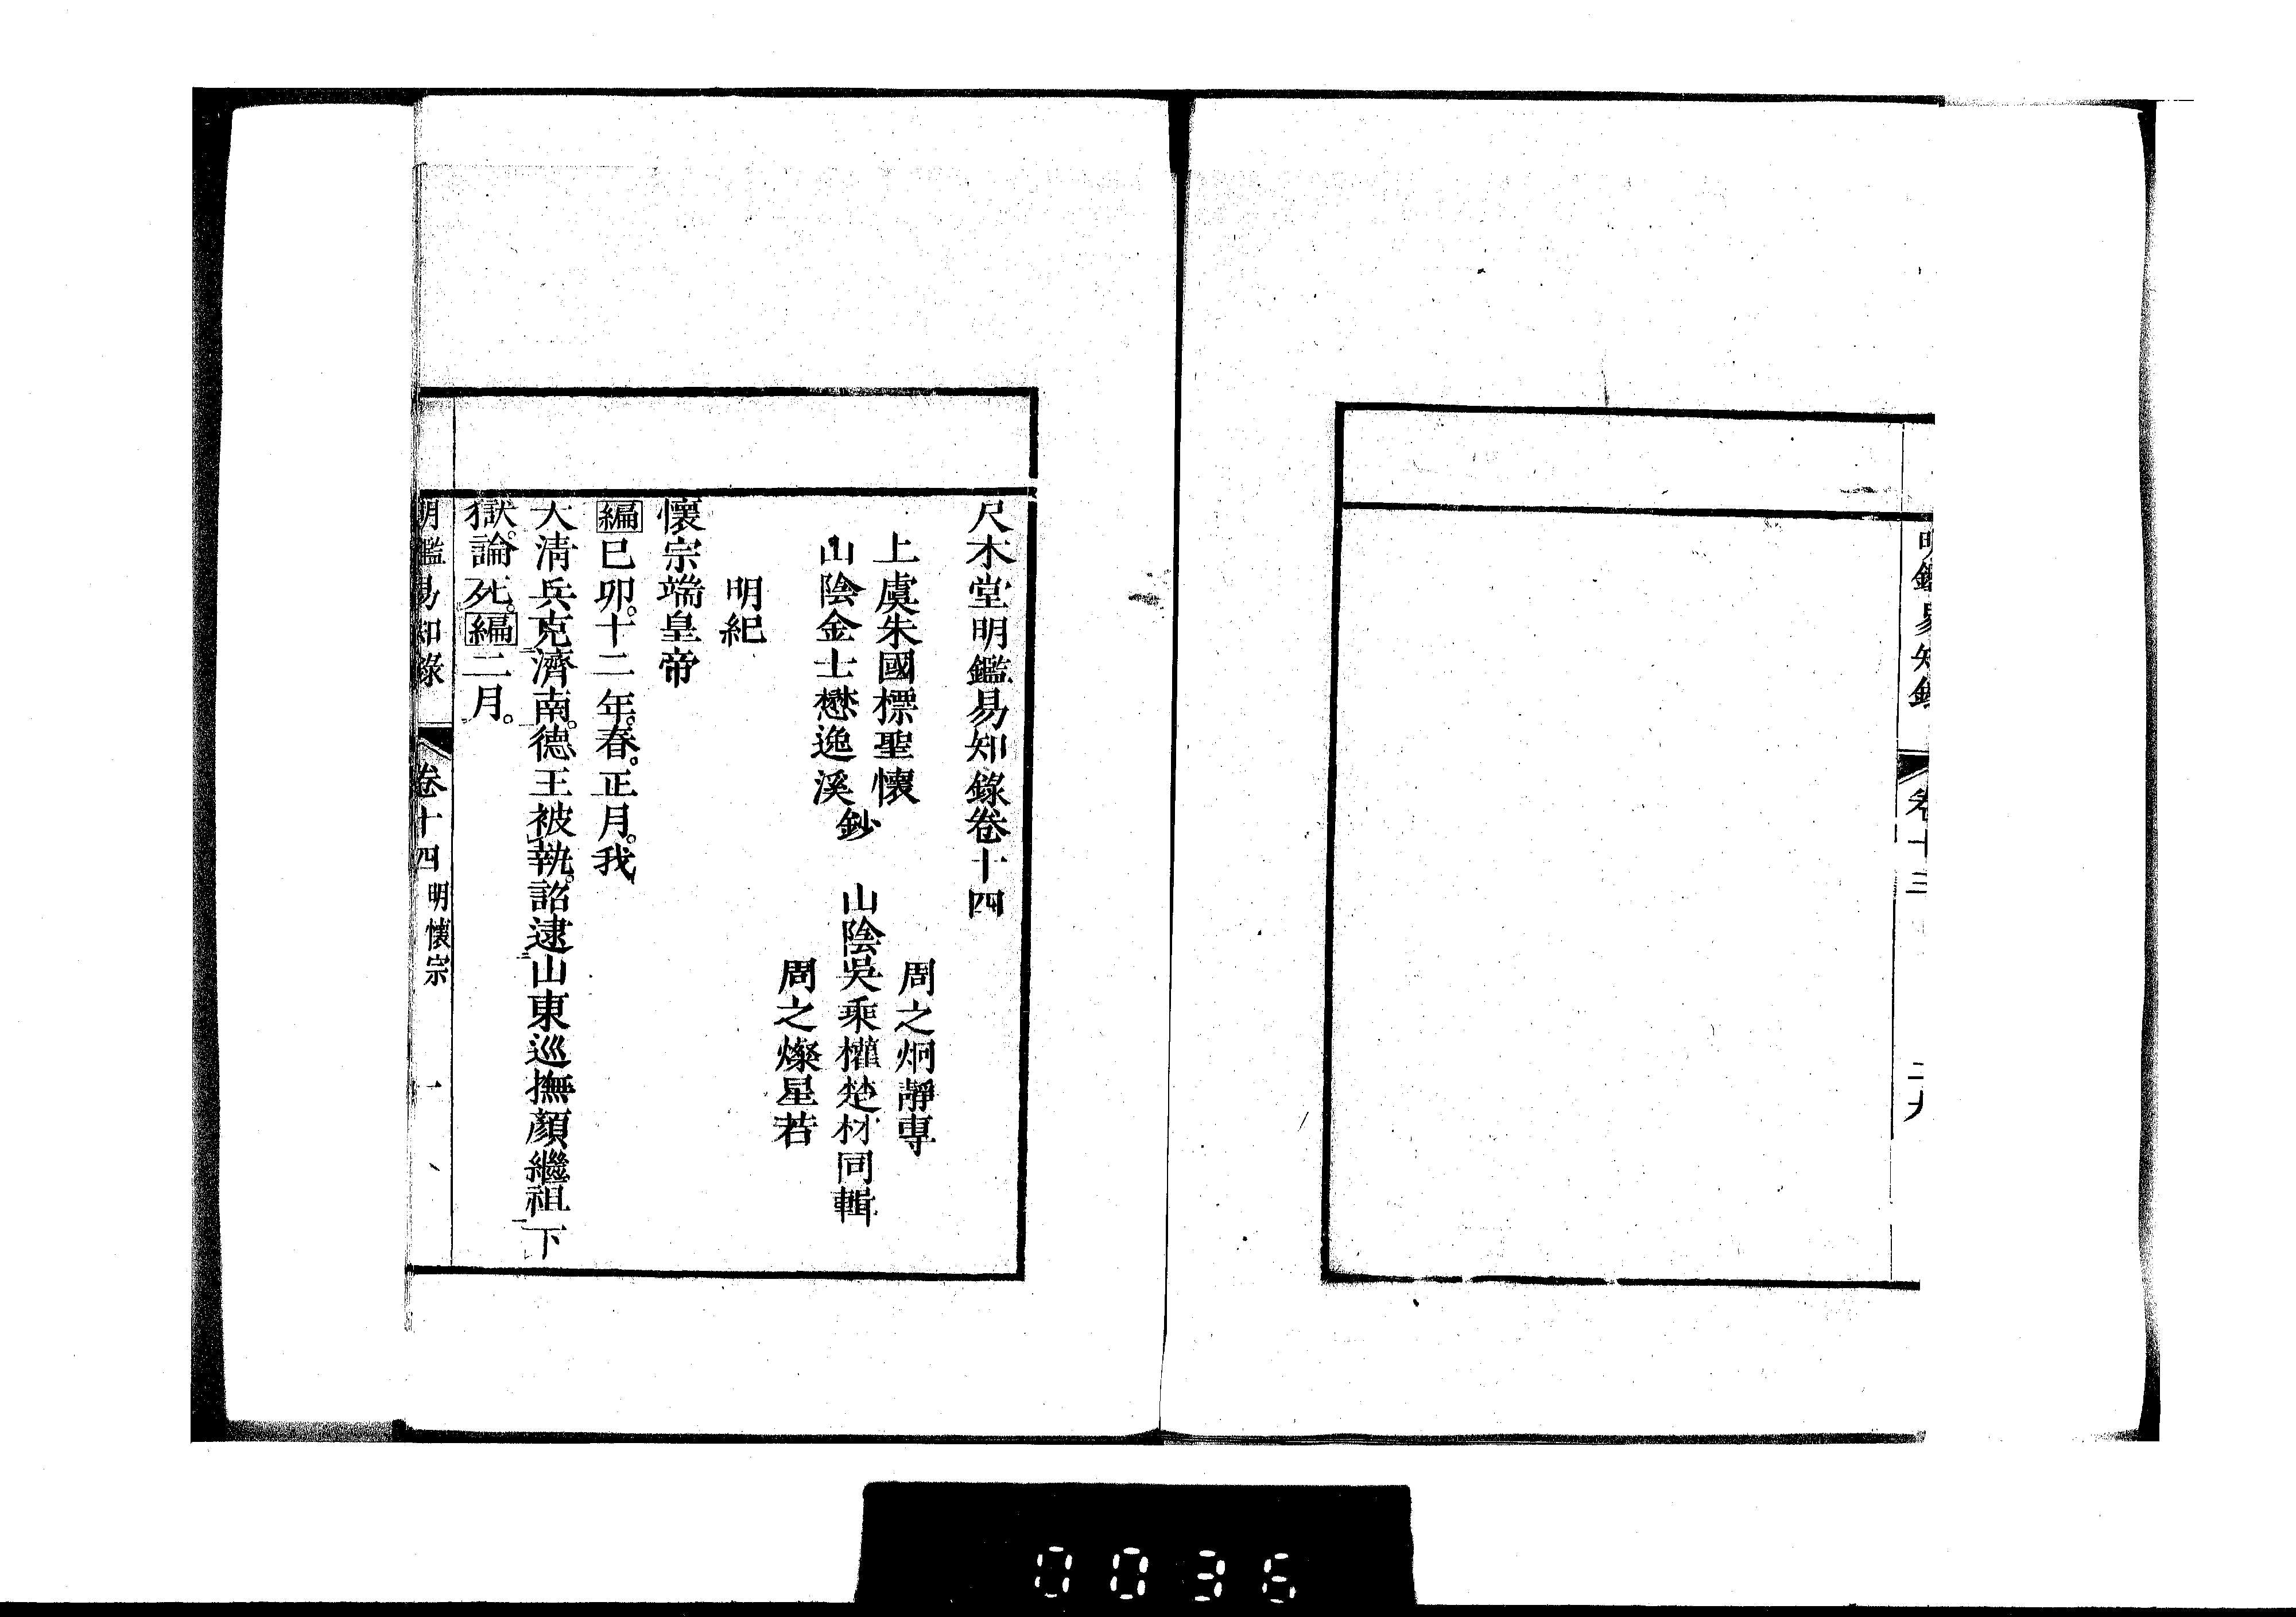 明鑑易知錄 卷十三 二九
尺木堂明鑑易知錄卷十四
上虞朱國標聖懷
山陰金士懋逸溪
鈔
周之炯靜專
山陰吳乘權楚材同輯
周之燦星若
明紀
懷宗端皇帝
編己卯。十二年。春。正月。我
大清兵克濟南。德王被執。詔逮山東巡撫顏繼祖下
獄。論死。編二月。
明鑑易知錄 卷十四 明懷宗 一
0036